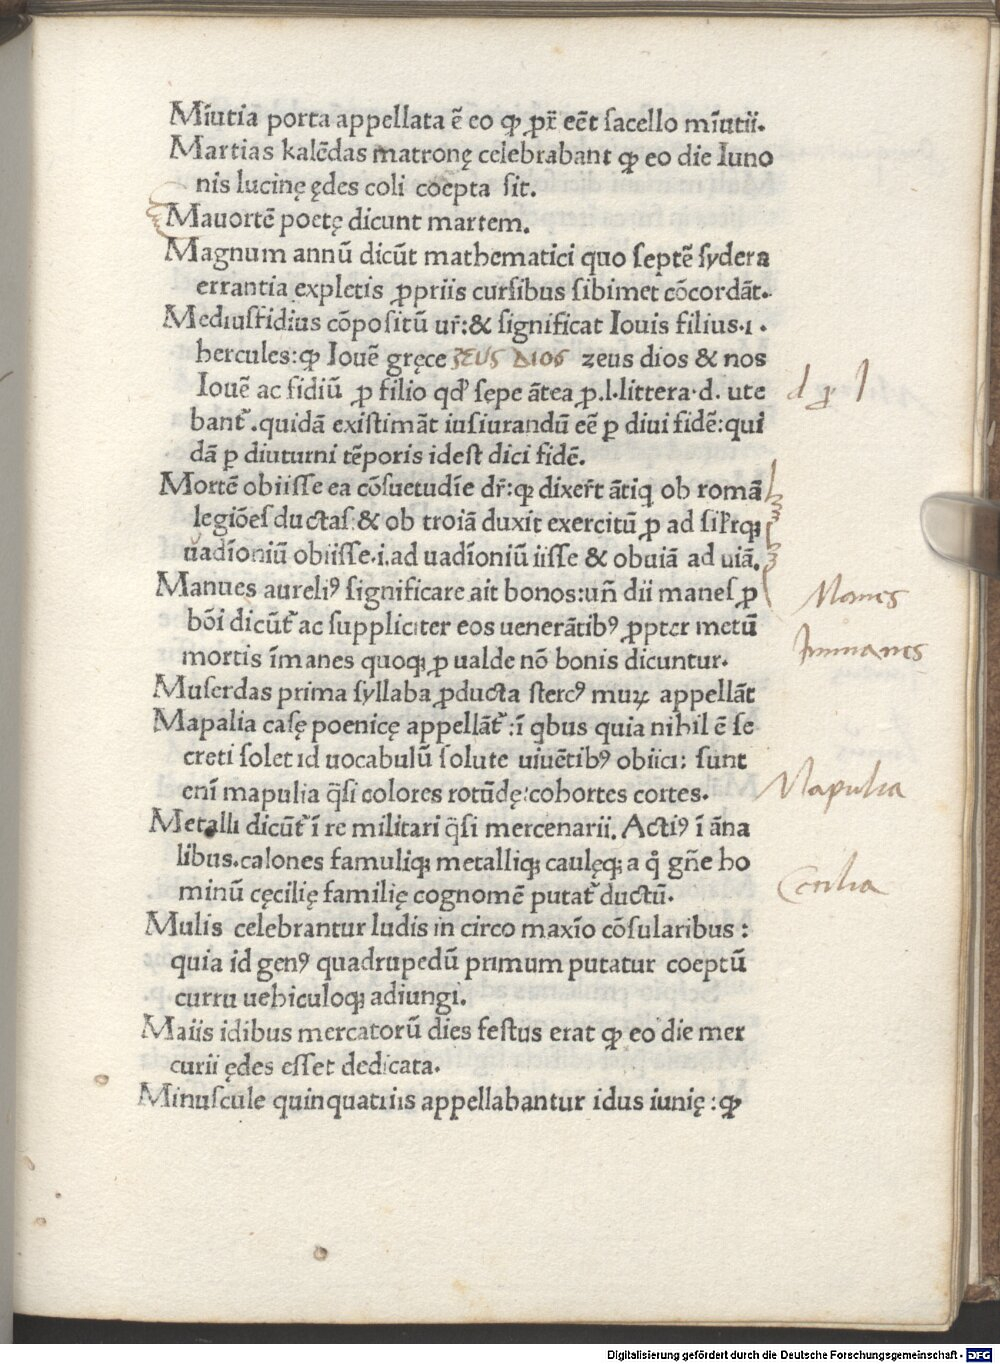 Mīutia porta appellata ē eo ꝙ ꝓpr̄ eēt ſacello mīutii.
Martias kalēdas matronę celebrabant ꝙ eo die Iuno
nis lucinę ędes coli coepta ſit.
Mauortē poetę dicunt martem.
Magnum annū dicūt mathematici quo ſeptē ſydera
errantia expletis ꝓpriis curſibus ſibimet cōcordāt.
Mediusfidius cōpoſitū ur̄:& ſignificat Iouis filius.i.
hercules:ꝙ Iouē gręce ΖΕUS ΔΙΟS zeus dios & nos
Iouē ac fidiū ꝓ filio qd' ſępe ātea ꝓ.l.littera.d. ute
bant᷑.quidā exiſtimāt iuſiurandū eē ꝑ diui fidē:qui
dā ꝑ diuturni tēporis ideſt dici fidē.
d pro l
Mortē obiiſſe ea cōſuetudīe dr̄:qꝫ dixer̄t ātiq ob romā
legiōeſ ductaſ:& ob troiā duxit exercitū ꝓ ad
uadīoniū obiiſſe.i.ad uadīoniū iiſſe & obuiā ad uiā.
Manues aureliꝰ ſignificare ait bonos:un̄ dii maneſ ꝓ
bōi dicūt᷑ ac ſuppliciter eos uenerātibꝰ ꝓpter metū
mortis īmanes quoqꝫ ꝓ ualde nō bonis dicuntur.
Manes
Immanes
Muſerdas prima ſyllaba ꝓducta ſtercꝰ muꝝ appellāt
Mapalia caſę poenicę appellāt᷑:ī qbus quia nihil ē ſe
creti ſolet id uocabulū ſolute uiuētibꝰ obiici: ſunt
enī mapulia q̄ſi colores rotūdę:cohortes cortes.
Mapulia
Metalli dicūt᷑ ī re militari q̄ſi mercenarii. Actiꝰ ī āna
libus.calones famuliqꝫ metalliqꝫ caulęqꝫ a q̊ gn̄e ho
minū cęcilię familię cognomē putat᷑ ductū.
Cecilia
Mulis celebrantur ludis in circo maxīo cōſularibus :
quia id genꝰ quadrupedū primum putatur coeptū
curru uehiculoqꝫ adiungi.
Maiis idibus mercatorū dies feſtus erat ꝙ eo die mer
curii ędes eſſet dedicata.
Minuſcule quinquatriis appellabantur idus iunię :ꝙ
Digitalisierung gefördert durch die Deutsche Forschungsgemeinschaft - DFG